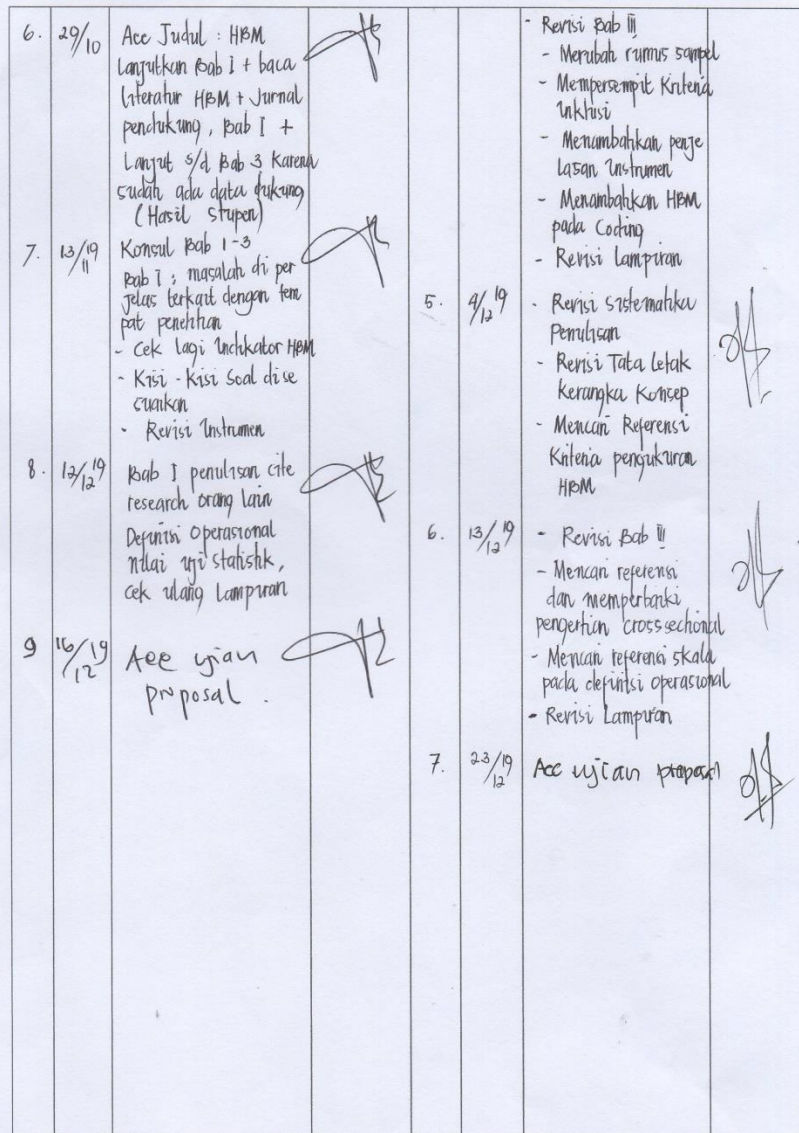 6. 29/10 Acc Judul : HBM
Lanjutkan Bab I + baca
literatur HBM + Jurnal
pendukung, Bab I +
Lanjut s/d Bab 3 karena
sudah ada data dukung
(Hasil Stupen)
7. 13/11 19 Konsul Bab 1-3
Bab I : masalah di per
jelas terkait dengan tem
pat penelitian
- Cek lagi Indikator HBM
- Kisi - Kisi Soal dise
suaikan
- Revisi Instrumen
8. 12/12 19 Bab I penulisan cite
research orang lain
Definisi Operasional
nilai uji statistik,
cek ulang Lampiran
9 16/12 19 Acc ujian
proposal.
- Revisi Bab III
- Merubah rumus sampel
- Mempersempit Kriteria
inklusi
- Menambahkan penje
lasan Instrumen
- Menambahkan HBM
pada Coding
- Revisi Lampiran
5. 4/12 19 - Revisi Sistematika
Penulisan
- Revisi Tata Letak
Kerangka Konsep
- Mencari Referensi
Kriteria pengukuran
HBM
6. 13/12 19 - Revisi Bab III
- Mencari referensi
dan memperbaiki
pengertian crossectional
- Mencari referensi skala
pada definisi operasional
- Revisi Lampiran
7. 23/12 19 Acc ujian proposal